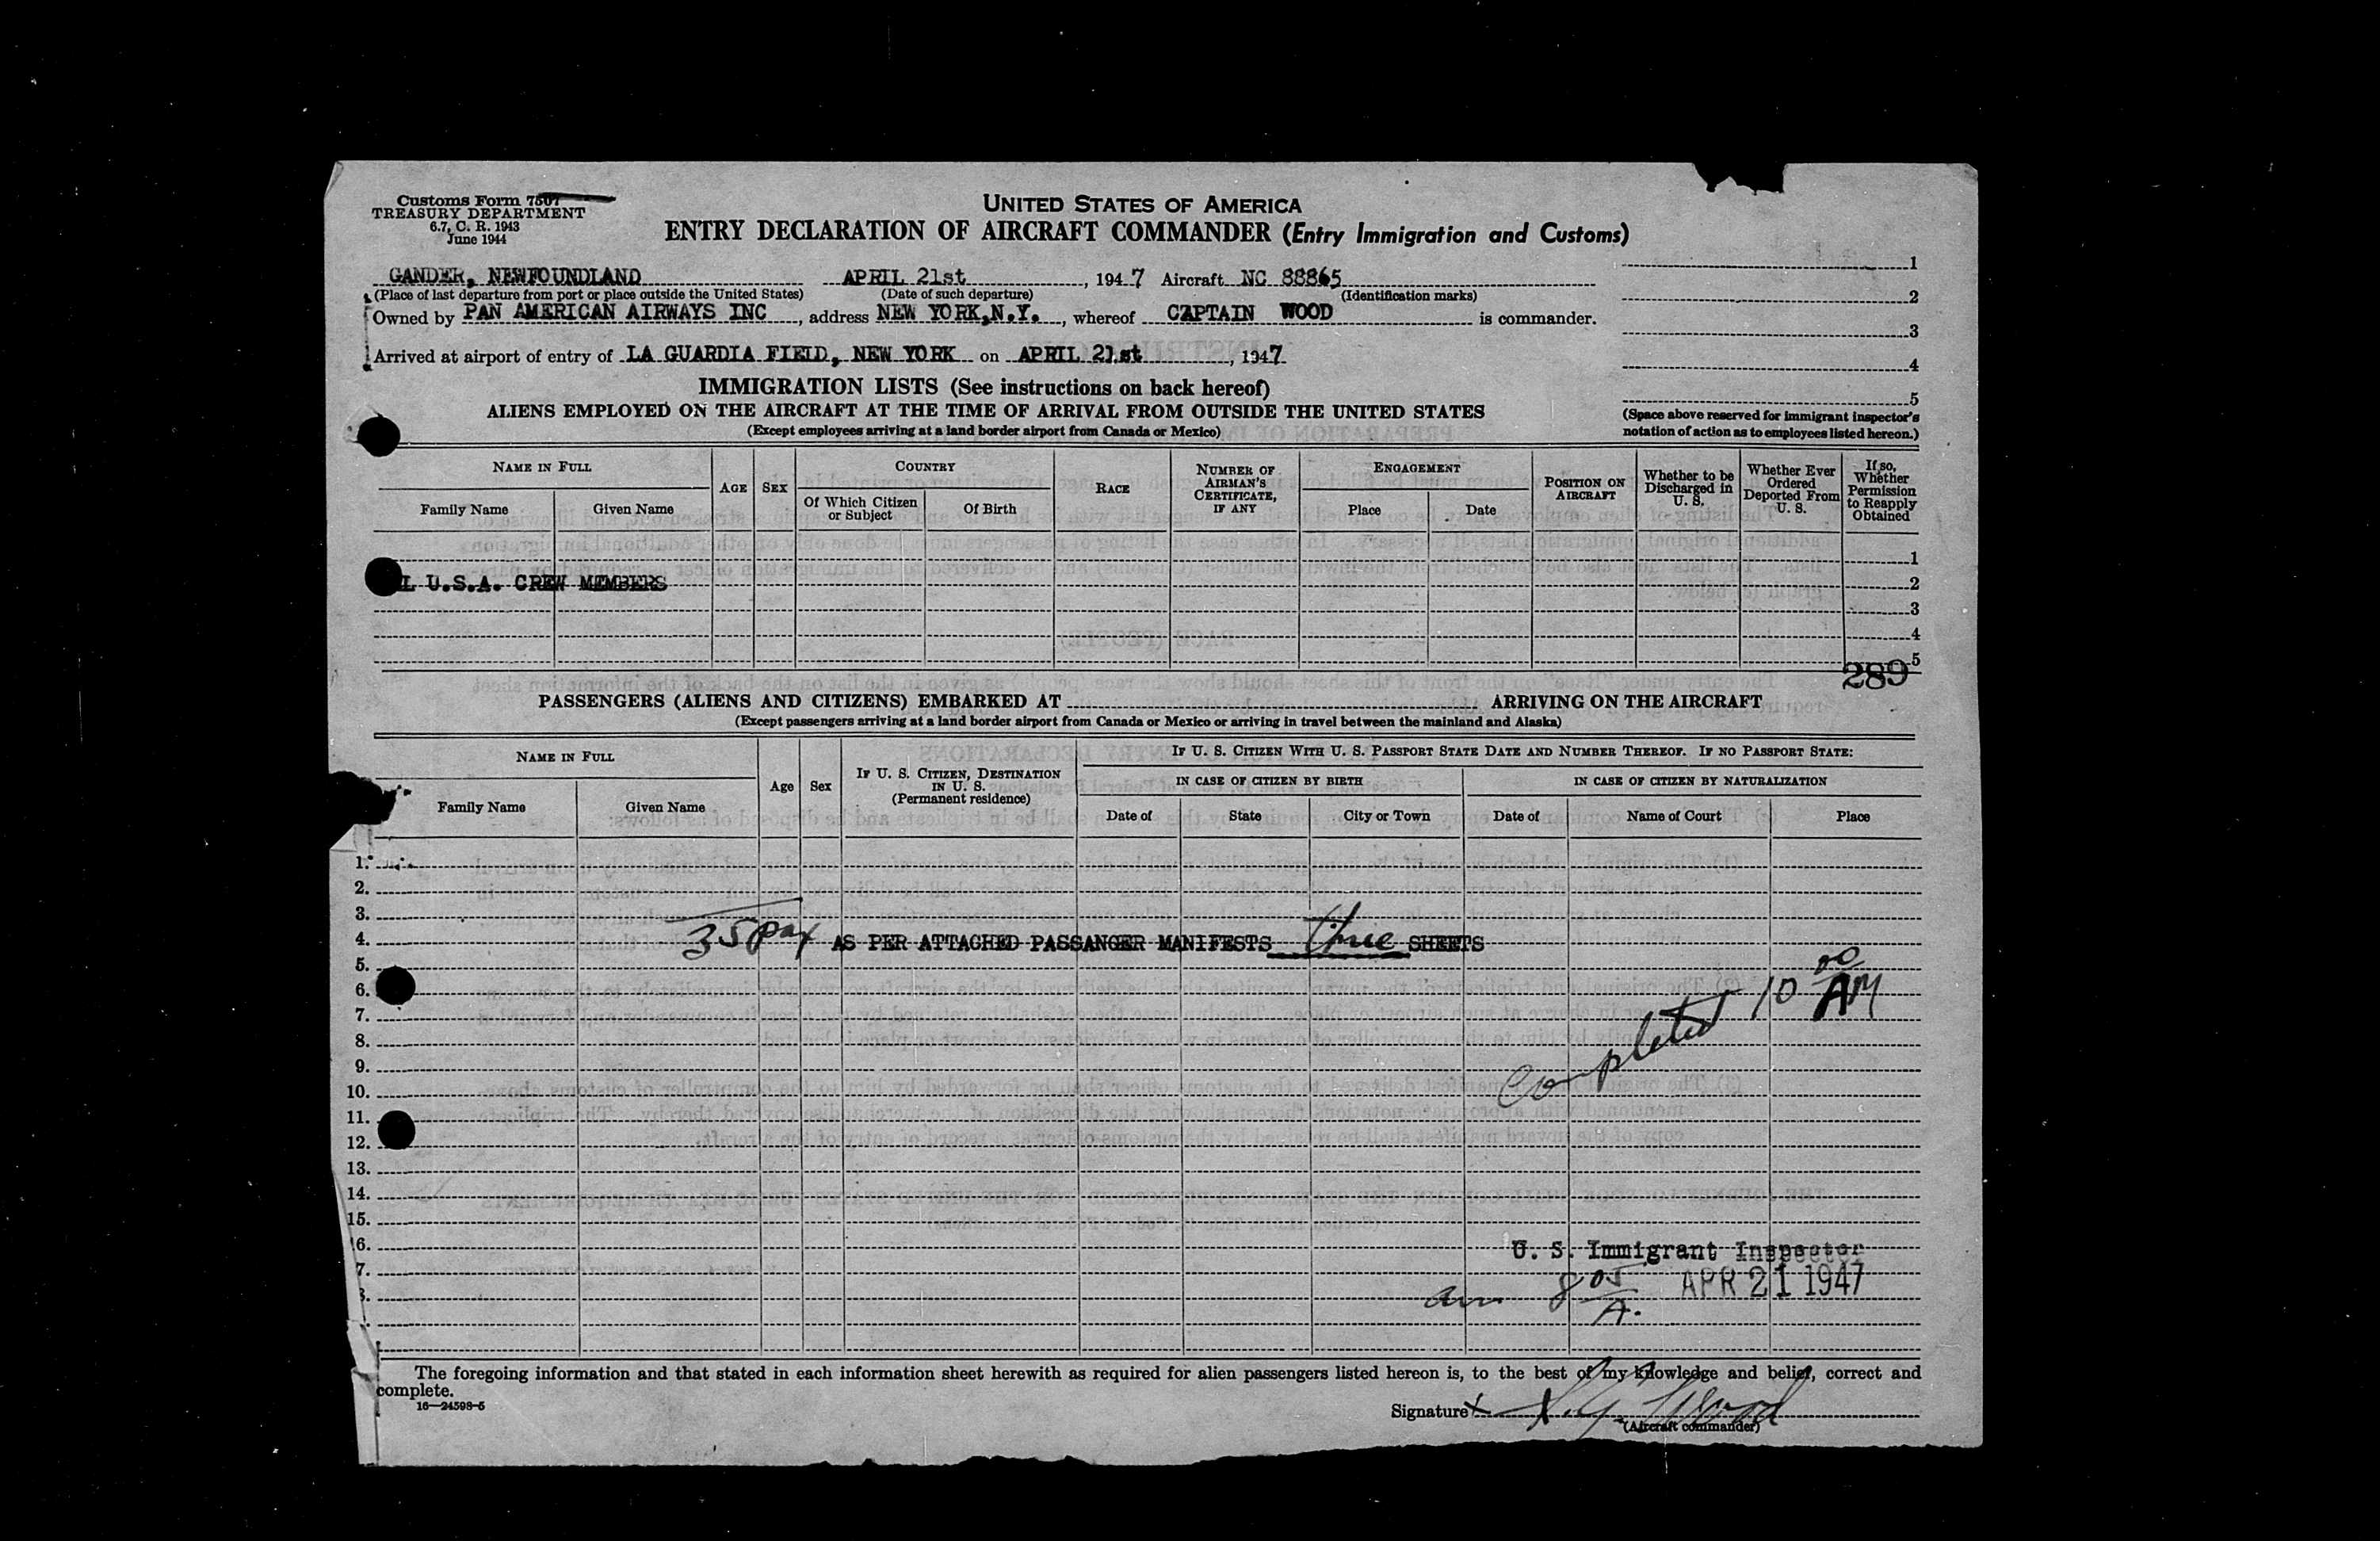 Customs Form 7507
TREASURY DEPARTMENT
6.7, C. R. 1943
June 1944
UNITED STATES OF AMERICA
ENTRY DECLARATION OF AIRCRAFT COMMANDER (Entry Immigration and Customs)
GANDER, NEWFOUNDLAND APRIL 21st, 1947 Aircraft NC 88865
(Place of last departure from port or place outside the United States) (Date of such departure) (Identification marks)
Owned by PAN AMERICAN AIRWAYS INC, address NEW YORK,N.Y., whereof CAPTAIN WOOD is commander.
Arrived at airport of entry of LA GUARDIA FIELD, NEW YORK on APRIL 21st, 1947
1
2
3
4
5
(Space above reserved for immigrant inspector's
notation of action as to employees listed hereon.)
IMMIGRATION LISTS (See instructions on back hereof)
ALIENS EMPLOYED ON THE AIRCRAFT AT THE TIME OF ARRIVAL FROM OUTSIDE THE UNITED STATES
(Except employees arriving at a land border airport from Canada or Mexico)
NAME IN FULL
Family Name Given Name
AGE SEX
COUNTRY
Of Which Citizen or Subject Of Birth
RACE
NUMBER OF AIRMAN'S CERTIFICATE, IF ANY
ENGAGEMENT
Place Date
POSITION ON AIRCRAFT
Whether to be Discharged in U. S.
Whether Ever Ordered Deported From U. S.
If so, Whether Permission to Reapply Obtained
1
L U.S.A. CREW MEMBERS 2
3
4
5
289
PASSENGERS (ALIENS AND CITIZENS) EMBARKED AT ARRIVING ON THE AIRCRAFT
(Except passengers arriving at a land border airport from Canada or Mexico or arriving in travel between the mainland and Alaska)
NAME IN FULL
Family Name Given Name
Age Sex
IF U. S. CITIZEN, DESTINATION IN U. S. (Permanent residence)
IF U. S. CITIZEN WITH U. S. PASSPORT STATE DATE AND NUMBER THEREOF. IF NO PASSPORT STATE:
IN CASE OF CITIZEN BY BIRTH IN CASE OF CITIZEN BY NATURALIZATION
Date of State City or Town Date of Name of Court Place
1.
2.
3.
4. 35 pax AS PER ATTACHED PASSANGER MANIFESTS three SHEETS
5.
6.
7.
8.
9.
10.
11.
12.
13.
14.
15.
6.
7.
completed 10 00 AM
U. S. Immigrant Inspector
8 05 A. APR 21 1947
The foregoing information and that stated in each information sheet herewith as required for alien passengers listed hereon is, to the best of my knowledge and belief, correct and
complete.
16—24598-5
Signature Wood
(Aircraft commander)